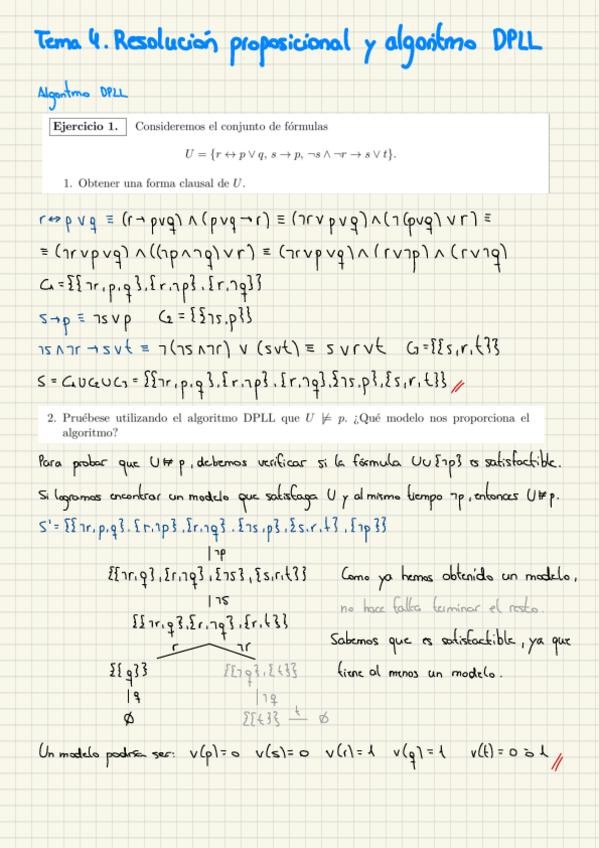 Tema 4. Resolución proposicional y algoritmo DPLL
Algoritmo DPLL
Ejercicio 1. Consideremos el conjunto de fórmulas
U = {r ↔ p ∨ q, s → p, ¬s ∧ ¬r → s ∨ t}.
1. Obtener una forma clausal de U.
r↔p∨q ≡ (r→p∨q) ∧ (p∨q→r) ≡ (¬r∨p∨q)∧(¬(p∨q)∨r) ≡
≡ (¬r∨p∨q) ∧((¬p∧¬q)∨r) ≡ (¬r∨p∨q) ∧ (r∨¬p) ∧ (r∨¬q)
C₁={{¬r,p,q},{r,¬p},{r,¬q}}
s→p ≡ ¬s∨p C₂ = {{¬s,p}}
¬s∧¬r → s∨t ≡ ¬(¬s∧¬r) ∨ (s∨t) ≡ s∨r∨t C₃={{s,r,t}}
S = C₁∪C₂∪C₃ = {{¬r,p,q},{r,¬p},{r,¬q},{¬s,p},{s,r,t}}
2. Pruébese utilizando el algoritmo DPLL que U ⊭ p. ¿Qué modelo nos proporciona el
algoritmo?
Para probar que U⊭p, debemos verificar si la fórmula U∪{¬p} es satisfactible.
Si logramos encontrar un modelo que satisfaga U y al mismo tiempo ¬p, entonces U⊭p.
S'={{¬r,p,q},{r,¬p},{r,¬q},{¬s,p},{s,r,t},{¬p}}
¬p
{{¬r,q},{r,¬q},{¬s},{s,r,t}} Como ya hemos obtenido un modelo,
¬s no hace falta terminar el resto.
{{¬r,q},{r,¬q},{r,t}} Sabemos que es satisfactible, ya que
r ¬r
{{q}} {{¬q},{t}} tiene al menos un modelo.
q ¬q
∅ {{t}} t ∅
Un modelo podría ser: v(p)=0 v(s)=0 v(r)=1 v(q)=1 v(t)=0 ó 1